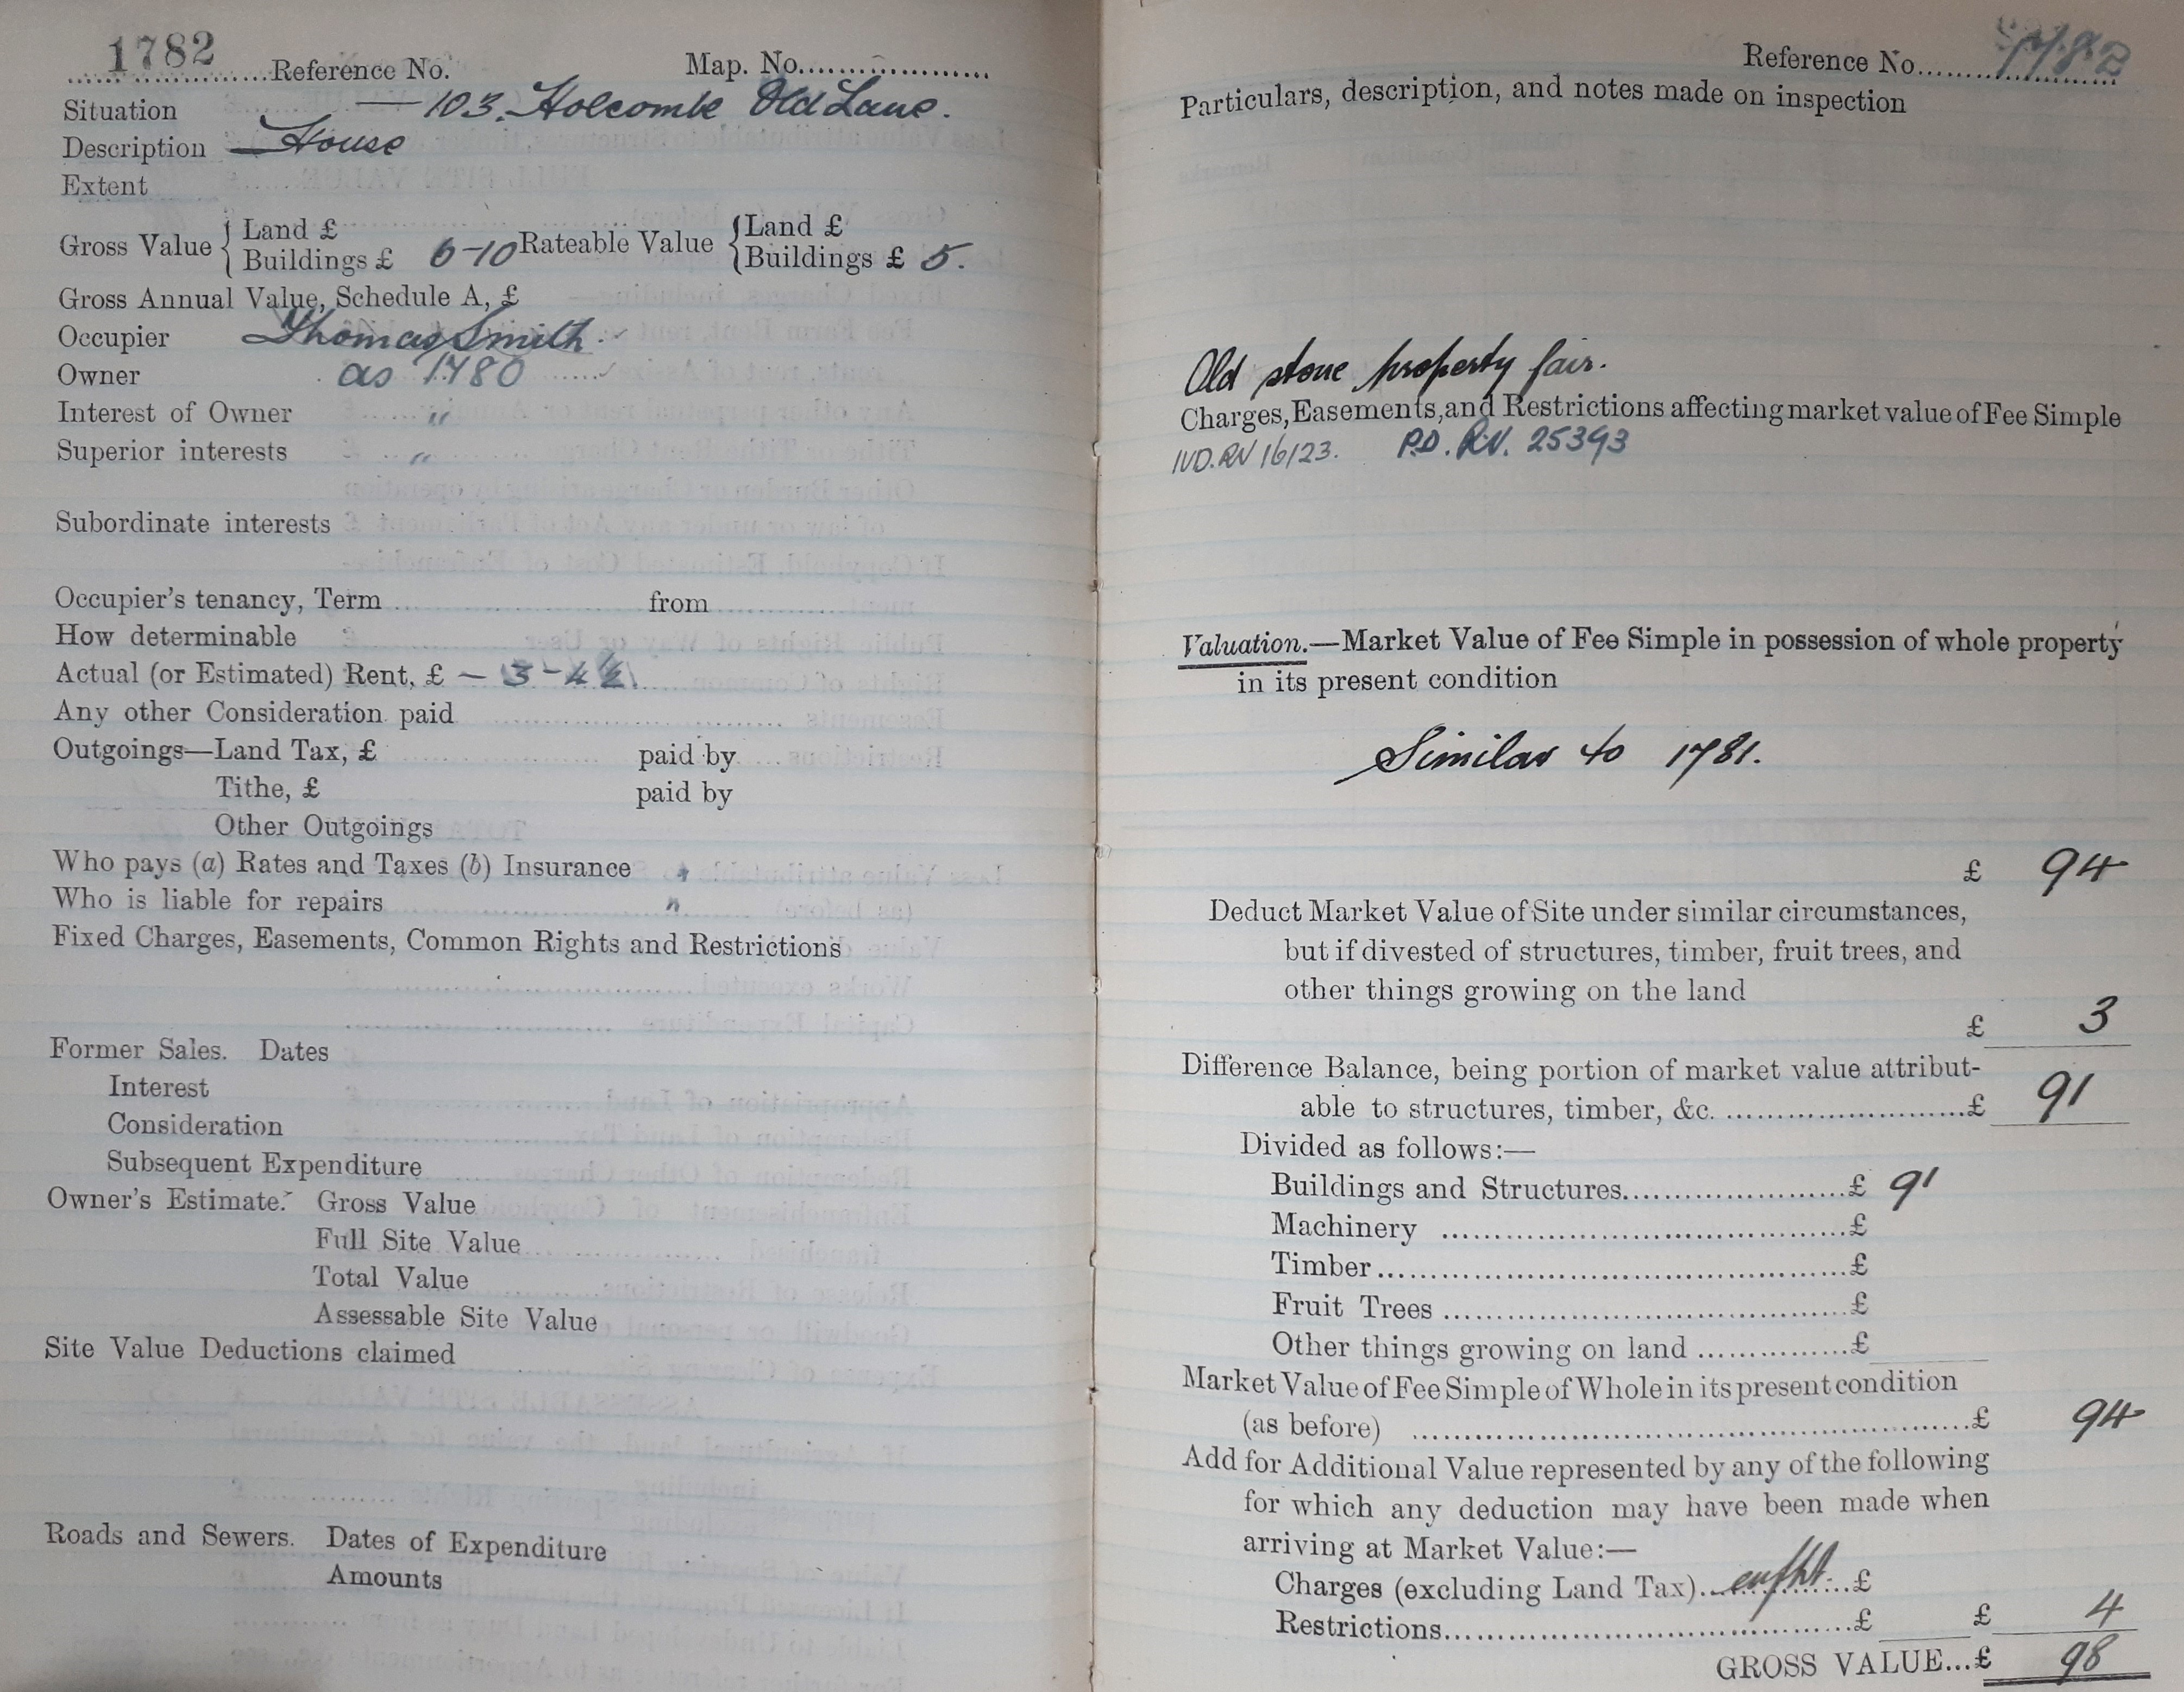 1782 Reference No. Map. No.
Situation — 103, Holcombe Old Lane.
Description House
Extent
Gross Value { Land £
Buildings £ 6-10 Rateable Value { Land £
Buildings £ 5.
Gross Annual Value, Schedule A, £
Occupier Thomas Smith
Owner as 1780
Interest of Owner "
Superior interests "
Subordinate interests
Occupier's tenancy, Term from
How determinable
Actual (or Estimated) Rent, £ — 3 -
Any other Consideration paid
Outgoings—Land Tax, £ paid by
Tithe, £ paid by
Other Outgoings
Who pays (a) Rates and Taxes (b) Insurance "
Who is liable for repairs "
Fixed Charges, Easements, Common Rights and Restrictions
Former Sales. Dates
Interest
Consideration
Subsequent Expenditure
Owner's Estimate. Gross Value
Full Site Value
Total Value
Assessable Site Value
Site Value Deductions claimed
Roads and Sewers. Dates of Expenditure
Amounts
Reference No. 1782
Particulars, description, and notes made on inspection
Old stone property fair.
Charges, Easements, and Restrictions affecting market value of Fee Simple
IVD. RN 16/23. P.D. R.V. 25393
Valuation.—Market Value of Fee Simple in possession of whole property
in its present condition
Similar to 1781.
£ 94
Deduct Market Value of Site under similar circumstances,
but if divested of structures, timber, fruit trees, and
other things growing on the land
£ 3
Difference Balance, being portion of market value attribut-
able to structures, timber, &c. £ 91
Divided as follows:—
Buildings and Structures £ 91
Machinery £
Timber £
Fruit Trees £
Other things growing on land £
Market Value of Fee Simple of Whole in its present condition
(as before) £ 94
Add for Additional Value represented by any of the following
for which any deduction may have been made when
arriving at Market Value:—
Charges (excluding Land Tax) £
Restrictions £ £ 4
GROSS VALUE...£ 98